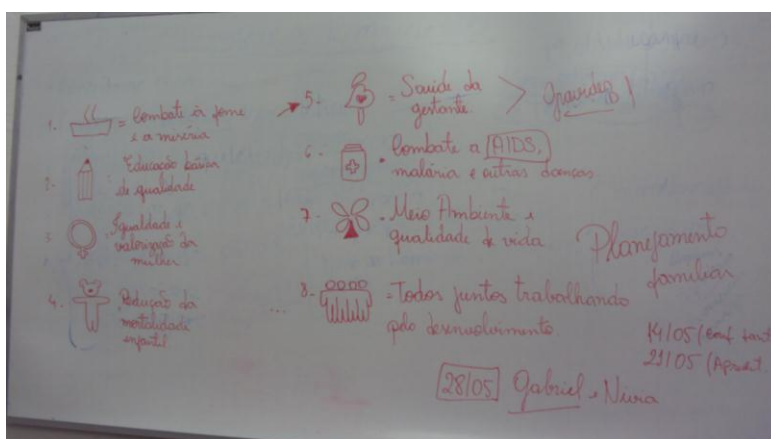 1. = Combate à fome
e a miséria
2. Educação básica
de qualidade
3 Igualdade e
valorização da
mulher
4. Redução da
mortalidade
infantil
5. = Saúde da
gestante > Gravidez
6. Combate a AIDS,
malária e outras doenças
7. Meio Ambiente e
qualidade de vida
8. = Todos juntos trabalhando
pelo desenvolvimento.
Planejamento
familiar
14/05
21/05 (Apresent.
28/05 Gabriel e Nivia